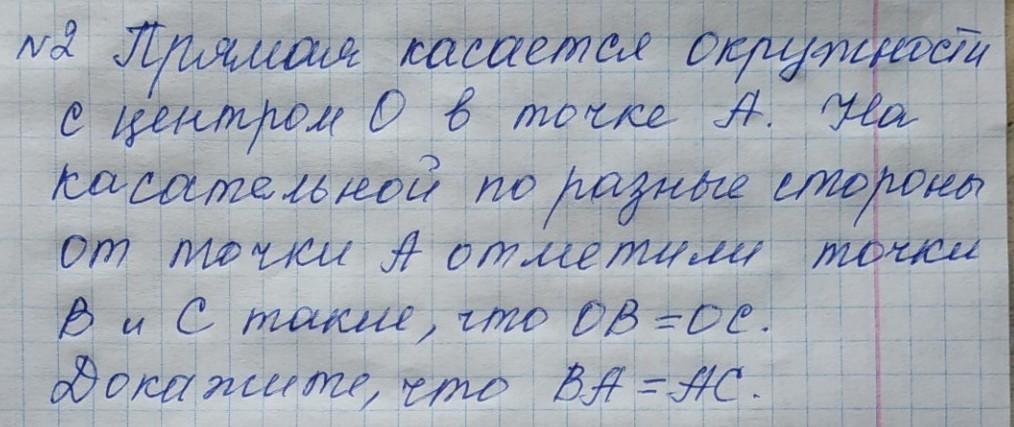 №2 Прямая касается окружности
с центром О в точке А. На
касательной по разные стороны
от точки А отметили точки
В и С такие, что ОВ=ОС.
Докажите, что ВА=АС.